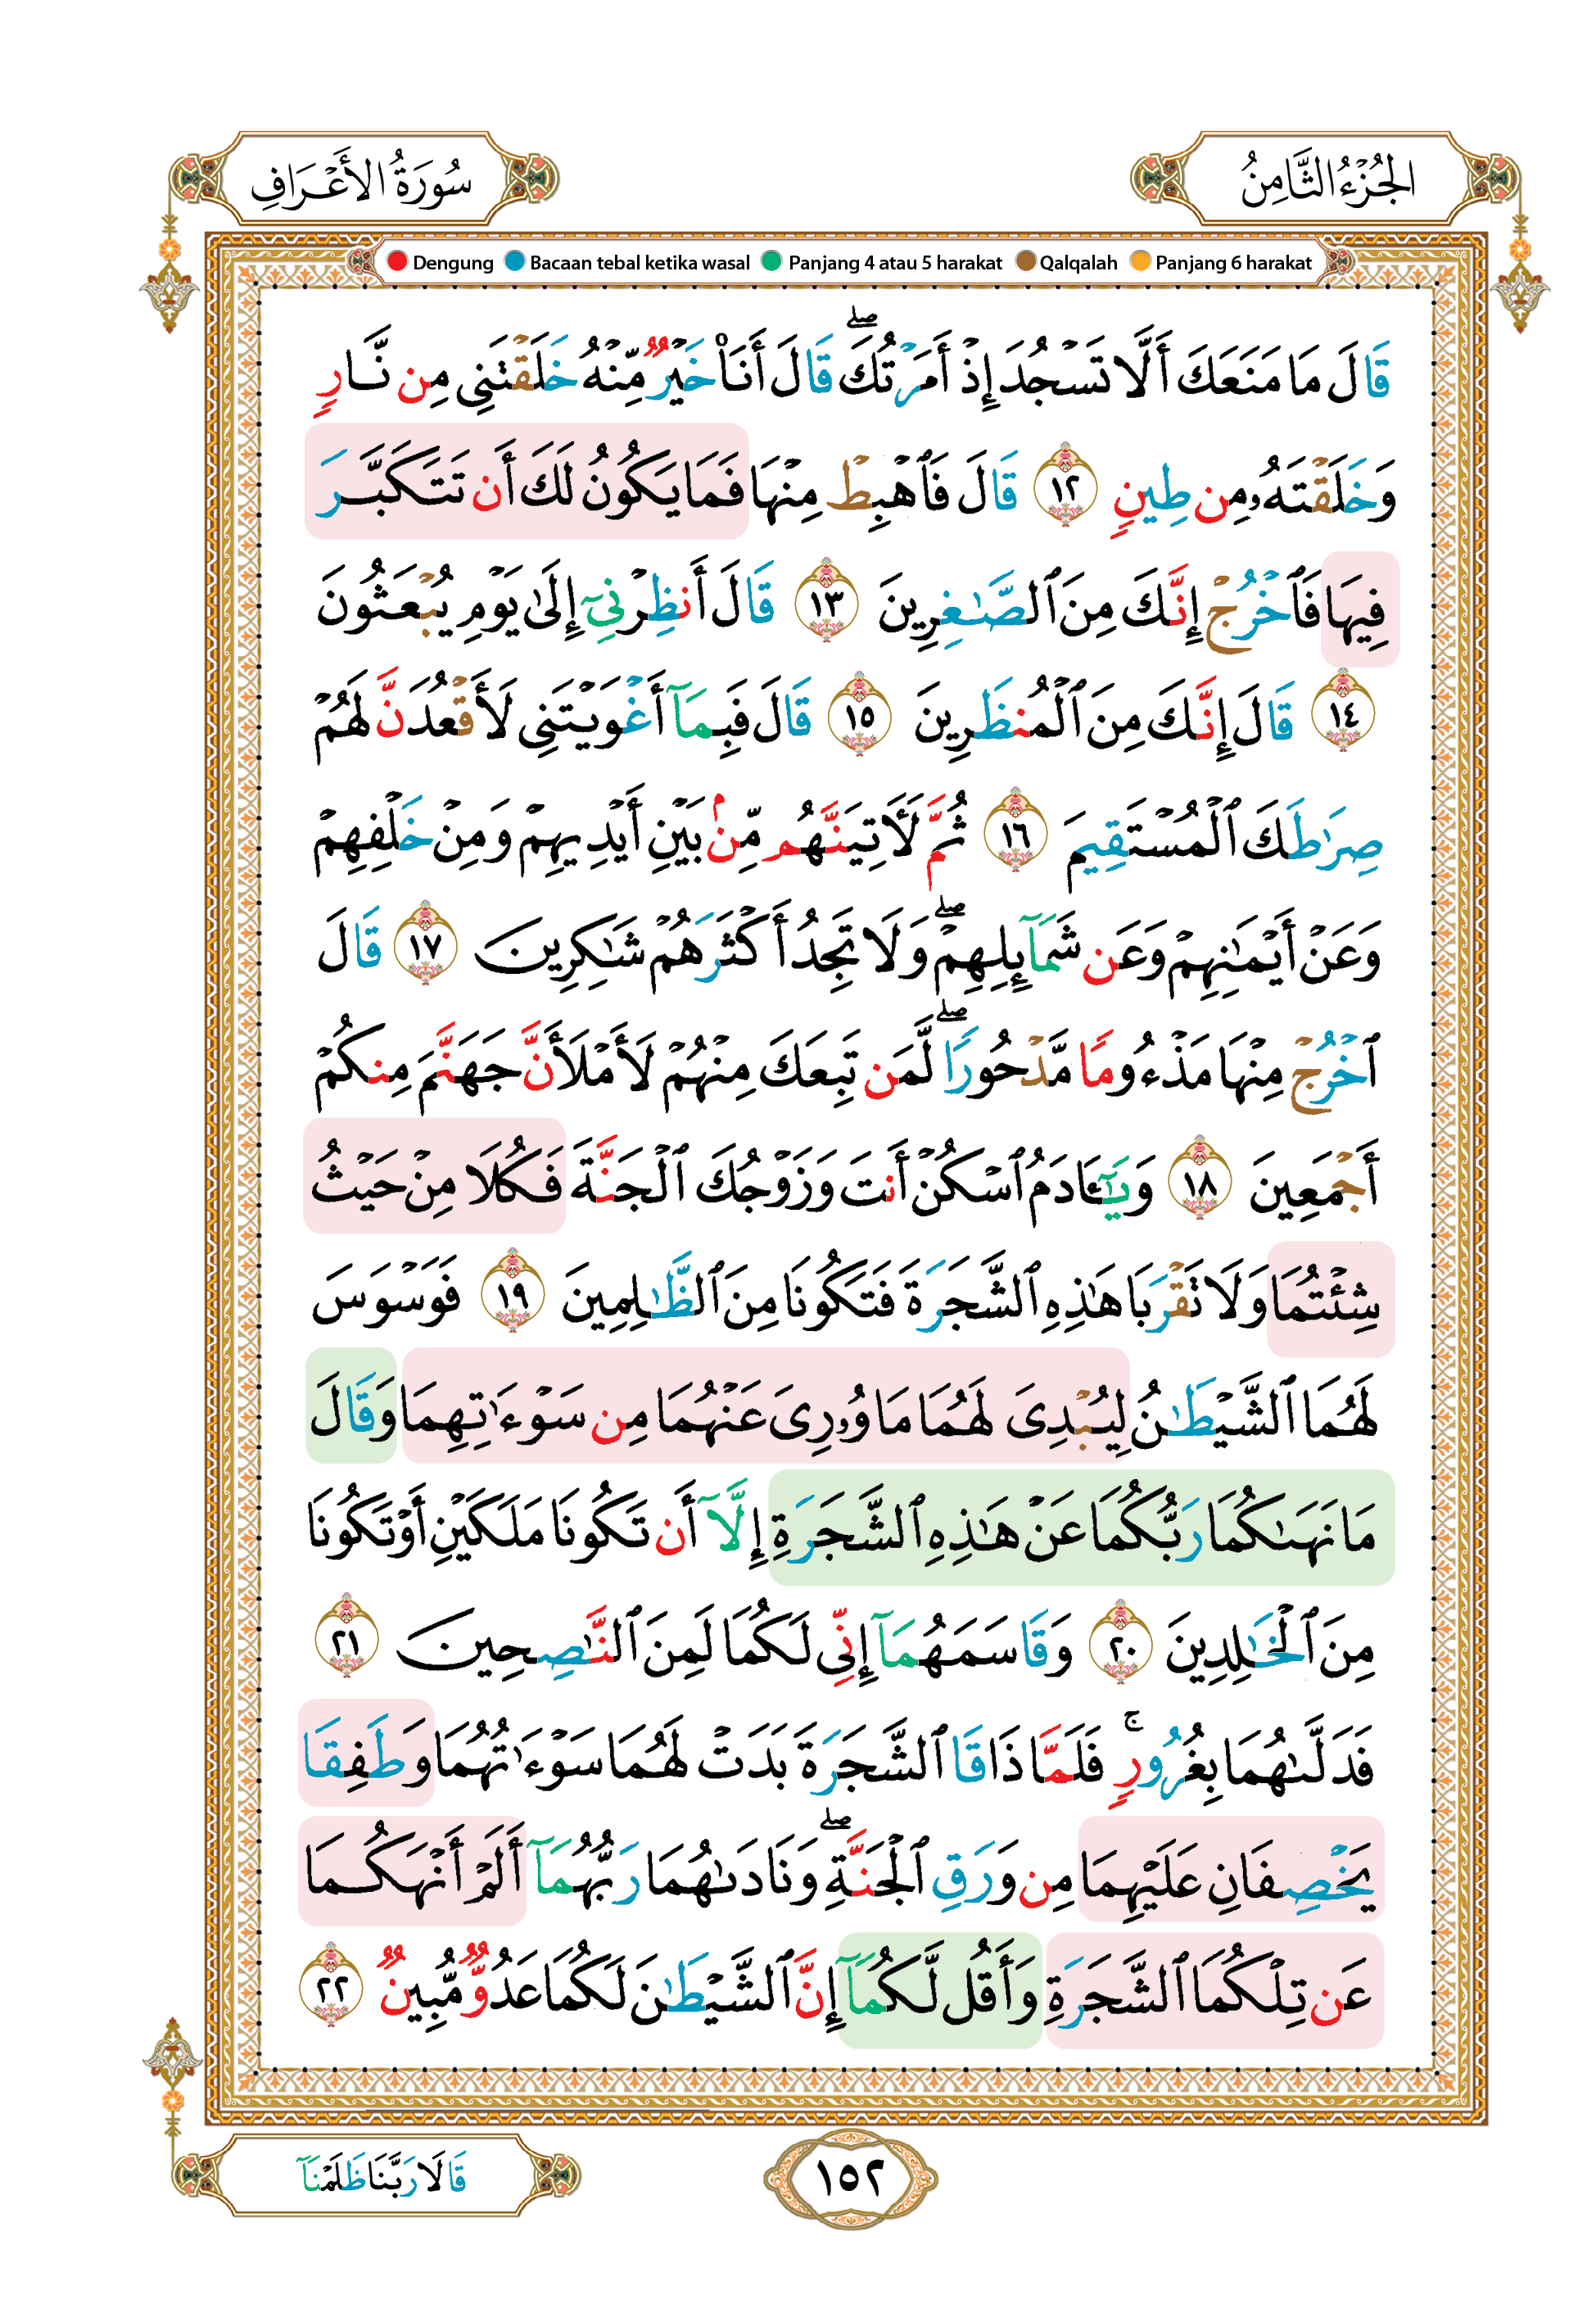 الجُزْءُ الثَّامِنُ
سُورَةُ الأَعْرَافِ
Dengung Bacaan tebal ketika wasal Panjang 4 atau 5 harakat Qalqalah Panjang 6 harakat
قَالَ مَا مَنَعَكَ أَلَّا تَسْجُدَ إِذْ أَمَرْتُكَ ۖ قَالَ أَنَا۠ خَيْرٌ مِّنْهُ خَلَقْتَنِى مِن نَّارٍ
وَخَلَقْتَهُۥ مِن طِينٍ ١٢ قَالَ فَٱهْبِطْ مِنْهَا فَمَا يَكُونُ لَكَ أَن تَتَكَبَّرَ
فِيهَا فَٱخْرُجْ إِنَّكَ مِنَ ٱلصَّـٰغِرِينَ ١٣ قَالَ أَنظِرْنِىٓ إِلَىٰ يَوْمِ يُبْعَثُونَ
١٤ قَالَ إِنَّكَ مِنَ ٱلْمُنظَرِينَ ١٥ قَالَ فَبِمَآ أَغْوَيْتَنِى لَأَقْعُدَنَّ لَهُمْ
صِرَٰطَكَ ٱلْمُسْتَقِيمَ ١٦ ثُمَّ لَـَٔاتِيَنَّهُم مِّنۢ بَيْنِ أَيْدِيهِمْ وَمِنْ خَلْفِهِمْ
وَعَنْ أَيْمَـٰنِهِمْ وَعَن شَمَآئِلِهِمْ ۖ وَلَا تَجِدُ أَكْثَرَهُمْ شَـٰكِرِينَ ١٧ قَالَ
ٱخْرُجْ مِنْهَا مَذْءُومًا مَّدْحُورًا ۖ لَّمَن تَبِعَكَ مِنْهُمْ لَأَمْلَأَنَّ جَهَنَّمَ مِنكُمْ
أَجْمَعِينَ ١٨ وَيَـٰٓـَٔادَمُ ٱسْكُنْ أَنتَ وَزَوْجُكَ ٱلْجَنَّةَ فَكُلَا مِنْ حَيْثُ
شِئْتُمَا وَلَا تَقْرَبَا هَـٰذِهِ ٱلشَّجَرَةَ فَتَكُونَا مِنَ ٱلظَّـٰلِمِينَ ١٩ فَوَسْوَسَ
لَهُمَا ٱلشَّيْطَـٰنُ لِيُبْدِىَ لَهُمَا مَا وُۥرِىَ عَنْهُمَا مِن سَوْءَٰتِهِمَا وَقَالَ
مَا نَهَىٰكُمَا رَبُّكُمَا عَنْ هَـٰذِهِ ٱلشَّجَرَةِ إِلَّآ أَن تَكُونَا مَلَكَيْنِ أَوْ تَكُونَا
مِنَ ٱلْخَـٰلِدِينَ ٢٠ وَقَاسَمَهُمَآ إِنِّى لَكُمَا لَمِنَ ٱلنَّـٰصِحِينَ ٢١
فَدَلَّىٰهُمَا بِغُرُورٍ ۚ فَلَمَّا ذَاقَا ٱلشَّجَرَةَ بَدَتْ لَهُمَا سَوْءَٰتُهُمَا وَطَفِقَا
يَخْصِفَانِ عَلَيْهِمَا مِن وَرَقِ ٱلْجَنَّةِ ۖ وَنَادَىٰهُمَا رَبُّهُمَآ أَلَمْ أَنْهَكُمَا
عَن تِلْكُمَا ٱلشَّجَرَةِ وَأَقُل لَّكُمَآ إِنَّ ٱلشَّيْطَـٰنَ لَكُمَا عَدُوٌّ مُّبِينٌ ٢٢
١٥٢
قَالَا رَبَّنَا ظَلَمْنَآ